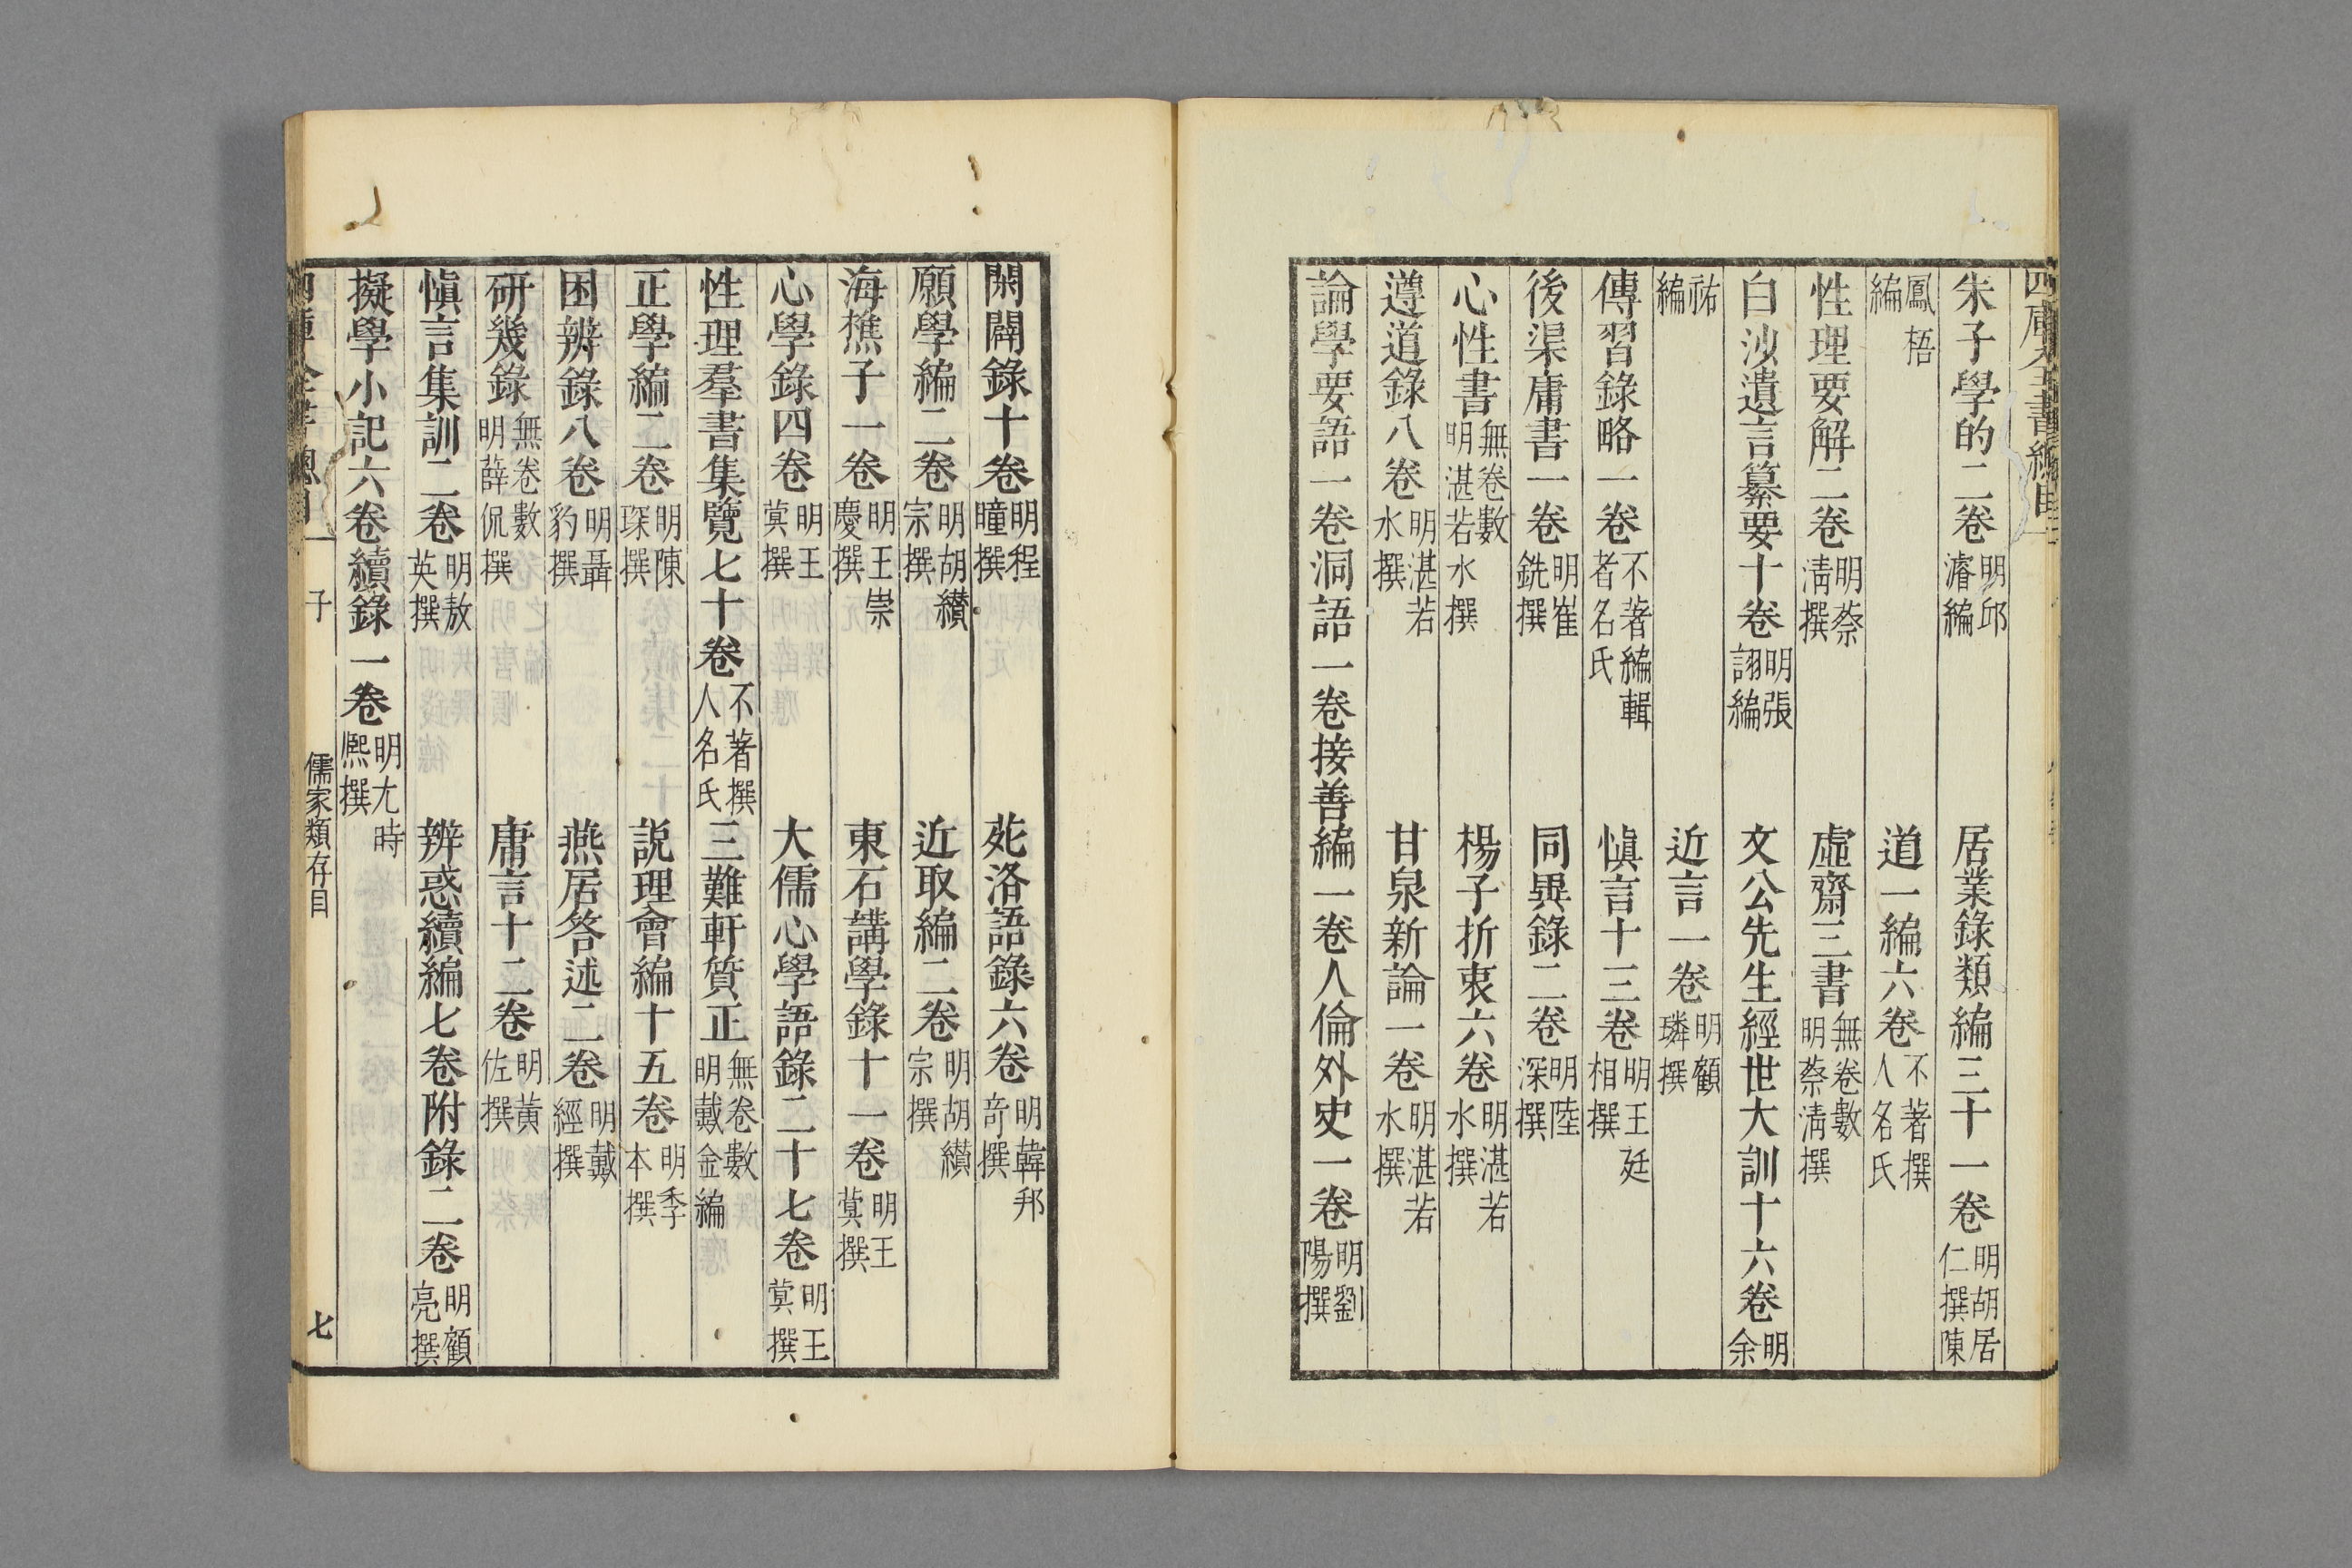 朱子學的二卷明邱濬編　居業錄類編三十一卷明胡居仁撰陳
鳳梧編　道一編六卷不著撰人名氏
性理要解二卷明蔡清撰　虛齋三書無卷數明蔡清撰
白沙遺言纂要十卷明張詡編　文公先生經世大訓十六卷明余
祐編　近言一卷明顧璘撰
傳習錄略一卷不著編輯者名氏　愼言十三卷明王廷相撰
後渠庸書一卷明崔銑撰　同異錄二卷明陸深撰
心性書無卷數明湛若水撰　楊子折衷六卷明湛若水撰
遵道錄八卷明湛若水撰　甘泉新論一卷明湛若水撰
論學要語一卷洞語一卷接善編一卷人倫外史一卷明劉陽撰
閑闢錄十卷明程曈撰　苑洛語錄六卷明韓邦奇撰
願學編二卷明胡纘宗撰　近取編二卷明胡纘宗撰
海樵子一卷明王崇慶撰　東石講學錄十一卷明王蓂撰
心學錄四卷明王蓂撰　大儒心學語錄二十七卷明王蓂撰
性理羣書集覽七十卷不著撰人名氏　三難軒質正無卷數明戴金編
正學編二卷明陳琛撰　説理會編十五卷明季本撰
困辨錄八卷明聶豹撰　燕居答述二卷明戴經撰
研幾錄無卷數明薛侃撰　庸言十二卷明黃佐撰
愼言集訓二卷明敖英撰　辨惑續編七卷附錄二卷明顧亮撰
擬學小記六卷續錄一卷明尤時熈撰
子　儒家類存目　七